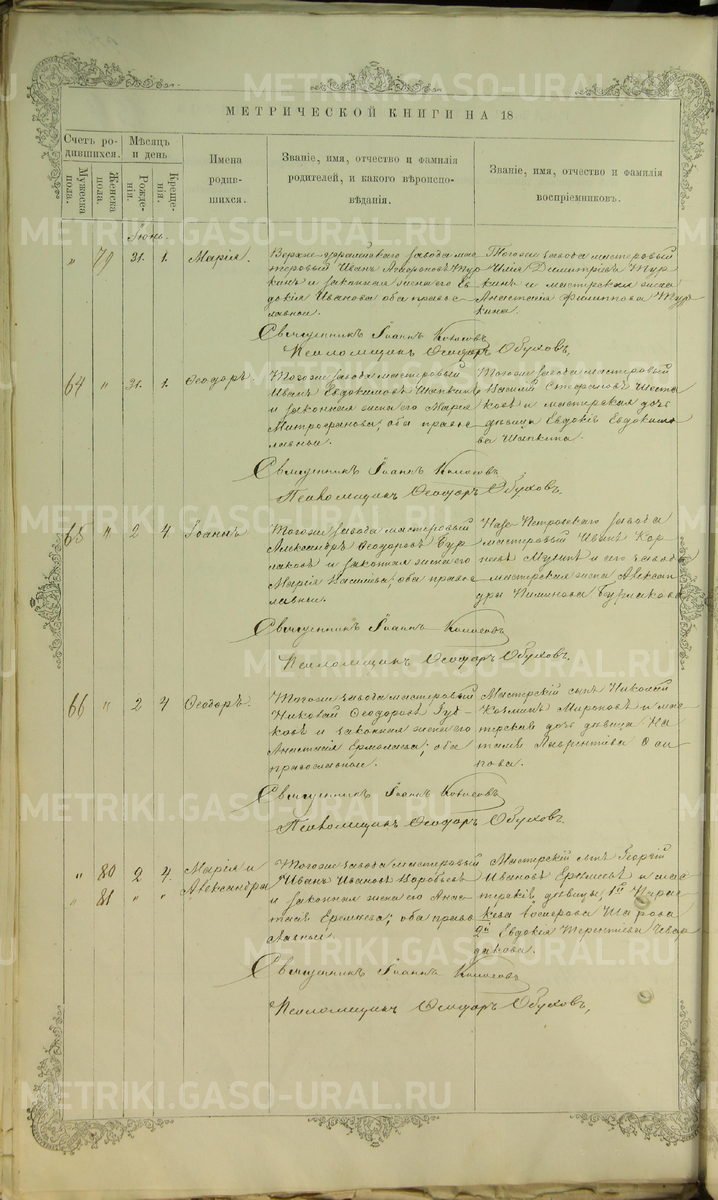 МЕТРИЧЕСКОЙ КНИГИ НА 18
Счетъ ро-
дившихся.
Мѣсяцъ
и день
Мужеска
пола.
Женска
пола.
Рожде-
нія.
Креще-
нія.
Имена
родив-
шихся.
Званіе, имя, отчество и фамилія
родителей, и какого вѣроиспо-
вѣданія.
Званіе, имя, отчество и фамилія
воспріемниковъ.
Іюнь.
" 79 31. 1. Марія.
завода мас-
теровый Иванъ Тур
кинъ и законная жена его Ев
докія Иванова оба правос
лавныи.
Тогоже завода мастеровый
Илія Димитріевъ Тур
кинъ и мастерская жена
Анастасія Филиппова Тур
кина.
Священникъ Іоаннъ
Псаломщикъ Ѳеодоръ Обуховъ,
64 " 31. 1. Ѳеодоръ.
Тогоже завода мастеровый
Иванъ Евдокимовъ Шапкинъ
и законная жена его Марія
Митрофанова, оба правос
лавныи.
Тогоже завода мастеровый
Василій Стефановъ Шеста
ковъ и мастерская дочь
дѣвица Евдокія Евдокимо
ва Шапкина.
Священникъ Іоаннъ
Псаломщикъ Ѳеодоръ Обуховъ.
65 " 2 4 Іоаннъ
Тогоже завода мастеровый
Александръ Ѳеодоровъ Бур
лаковъ и законная жена его
Марія Васильева, оба правос
лавныи.
Петровскаго завода
мастеровый Иванъ Кор
и его завода
мастерская жена Александ
ры Пименова Бурлакова
Священникъ Іоаннъ
Псаломщикъ Ѳеодоръ Обуховъ.
66 " 2 4 Ѳеодоръ.
Тогоже завода мастеровый
Николай Ѳеодоровъ Зуб-
ковъ и законная жена его
Анастасія Ермолаева, оба
православныи.
Мастерскій сынъ Николай
Козминъ Мироновъ и мас
терская дочь дѣвица На
талія Лаврентіева
Священникъ Іоаннъ
Псаломщикъ Ѳеодоръ Обуховъ.
" 80 2 4. Марія и
" 81 " " Александра
Тогоже завода мастеровый
Иванъ Ивановъ Воробьевъ
и законная жена его Анас
тасія Еремѣева, оба право
лавныи.
Мастерскій сынъ Георгій
Ивановъ и мас
терскія дѣвицы, 1я
2я Евдокія Терентіева
Священникъ Іоаннъ
Псаломщикъ Ѳеодоръ Обуховъ,
METRIKI.GASO-URAL.RU